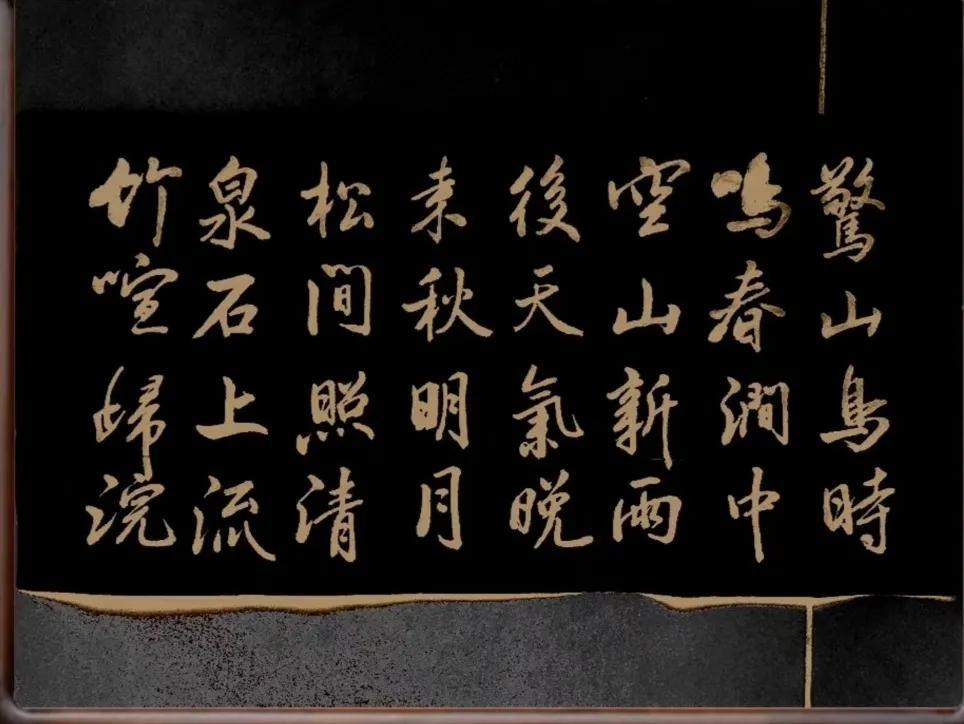 驚山鳥時
鳴春澗中
空山新雨
後天氣晚
来秋明月
松間照清
泉石上流
竹喧歸浣